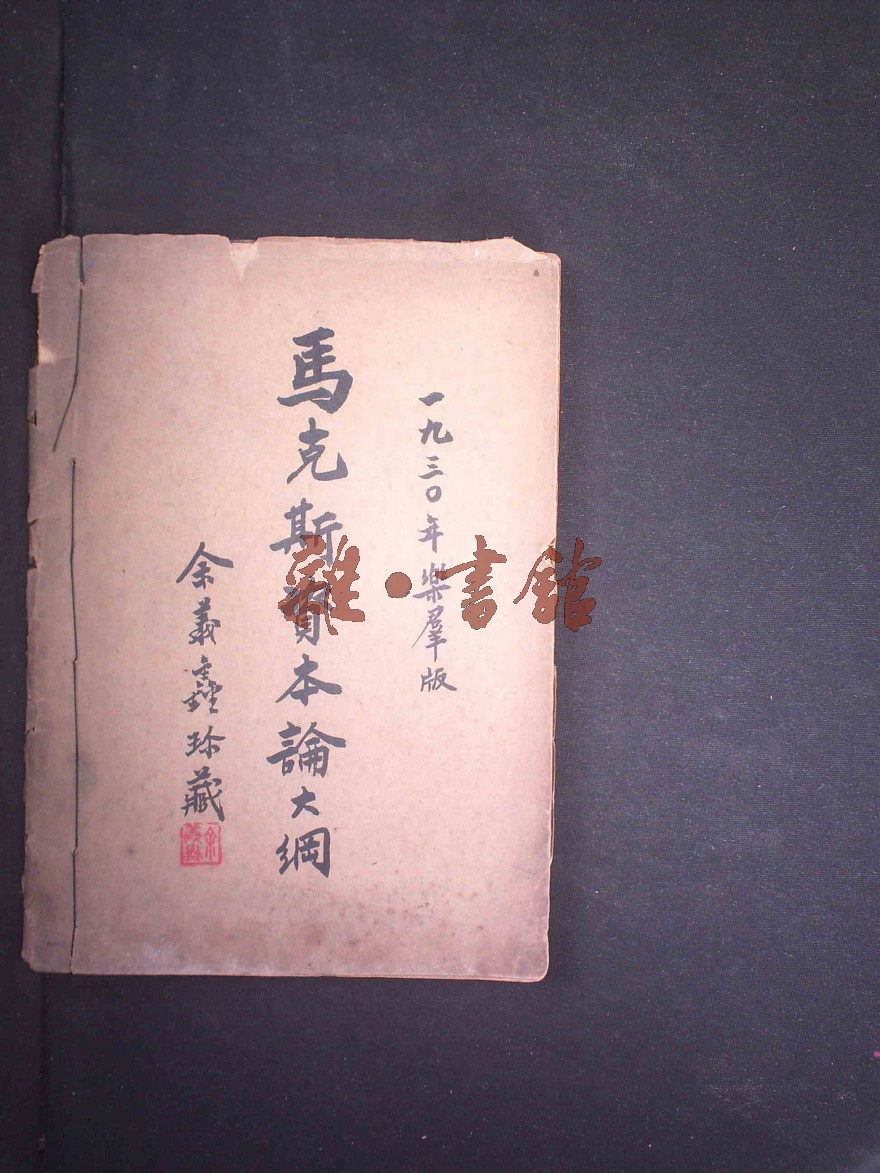 一九三〇年樂羣版
馬克斯資本論大綱
余義鑫珍藏
雜·書館